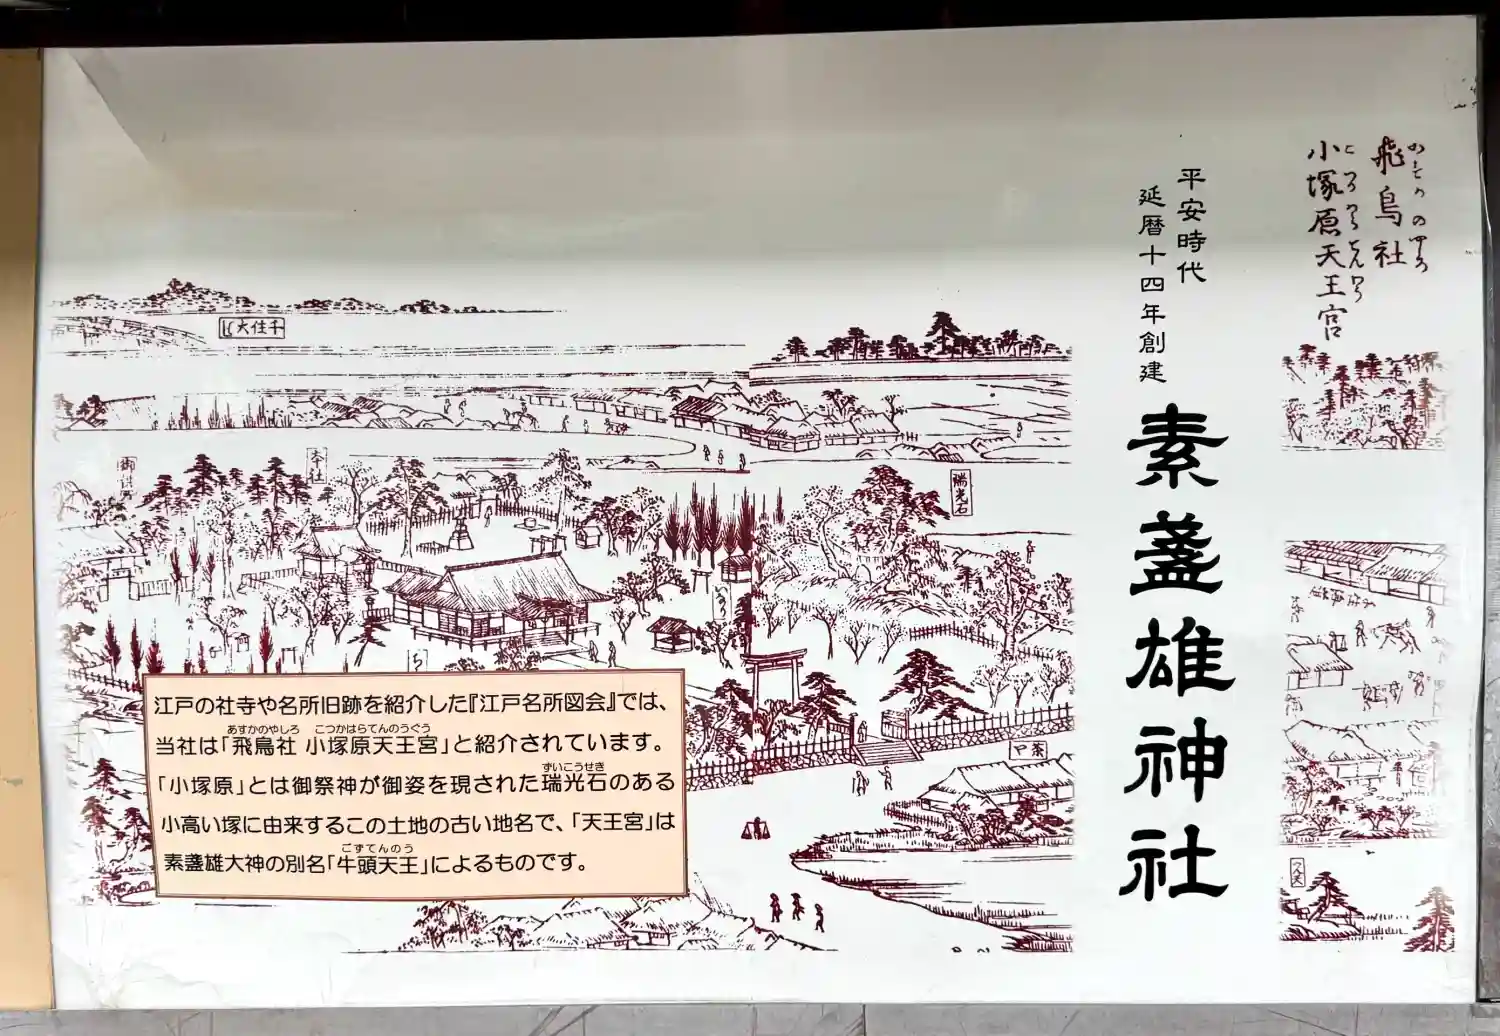 飛鳥社
小塚原天王宮
平安時代
延暦十四年創建
素盞雄神社
千住大は
本社
瑞光石
茶や
江戸の社寺や名所旧跡を紹介した『江戸名所図会』では、
あすかのやしろ こつかはらてんのうぐう
当社は「飛鳥社 小塚原天王宮」と紹介されています。
ずいこうせき
「小塚原」とは御祭神が御姿を現された瑞光石のある
小高い塚に由来するこの土地の古い地名で、「天王宮」は
ごずてんのう
素盞雄大神の別名「牛頭天王」によるものです。